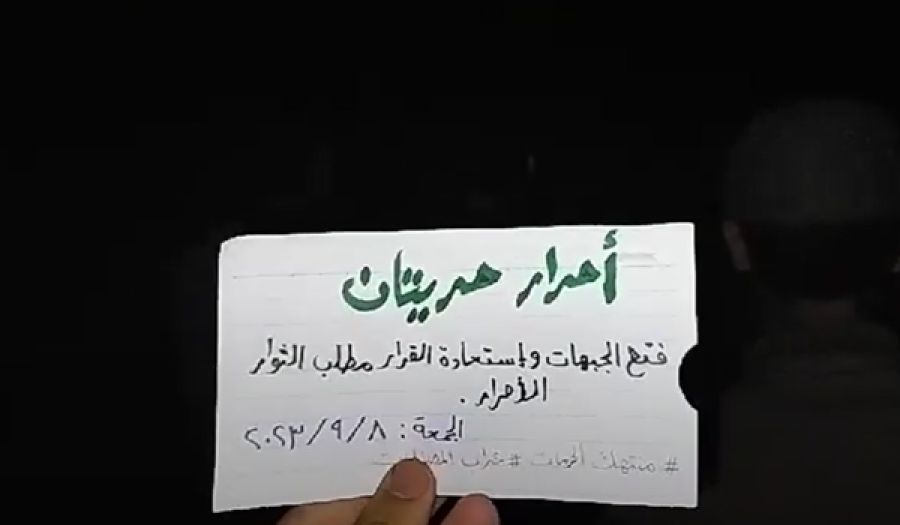 أحرار حريتان
فتح الجبهات وإستعادة القرار مطلب الثوار
الأحرار .
الجمعة : ٢٠٢٣/٩/٨
# منتهك الحرمات #